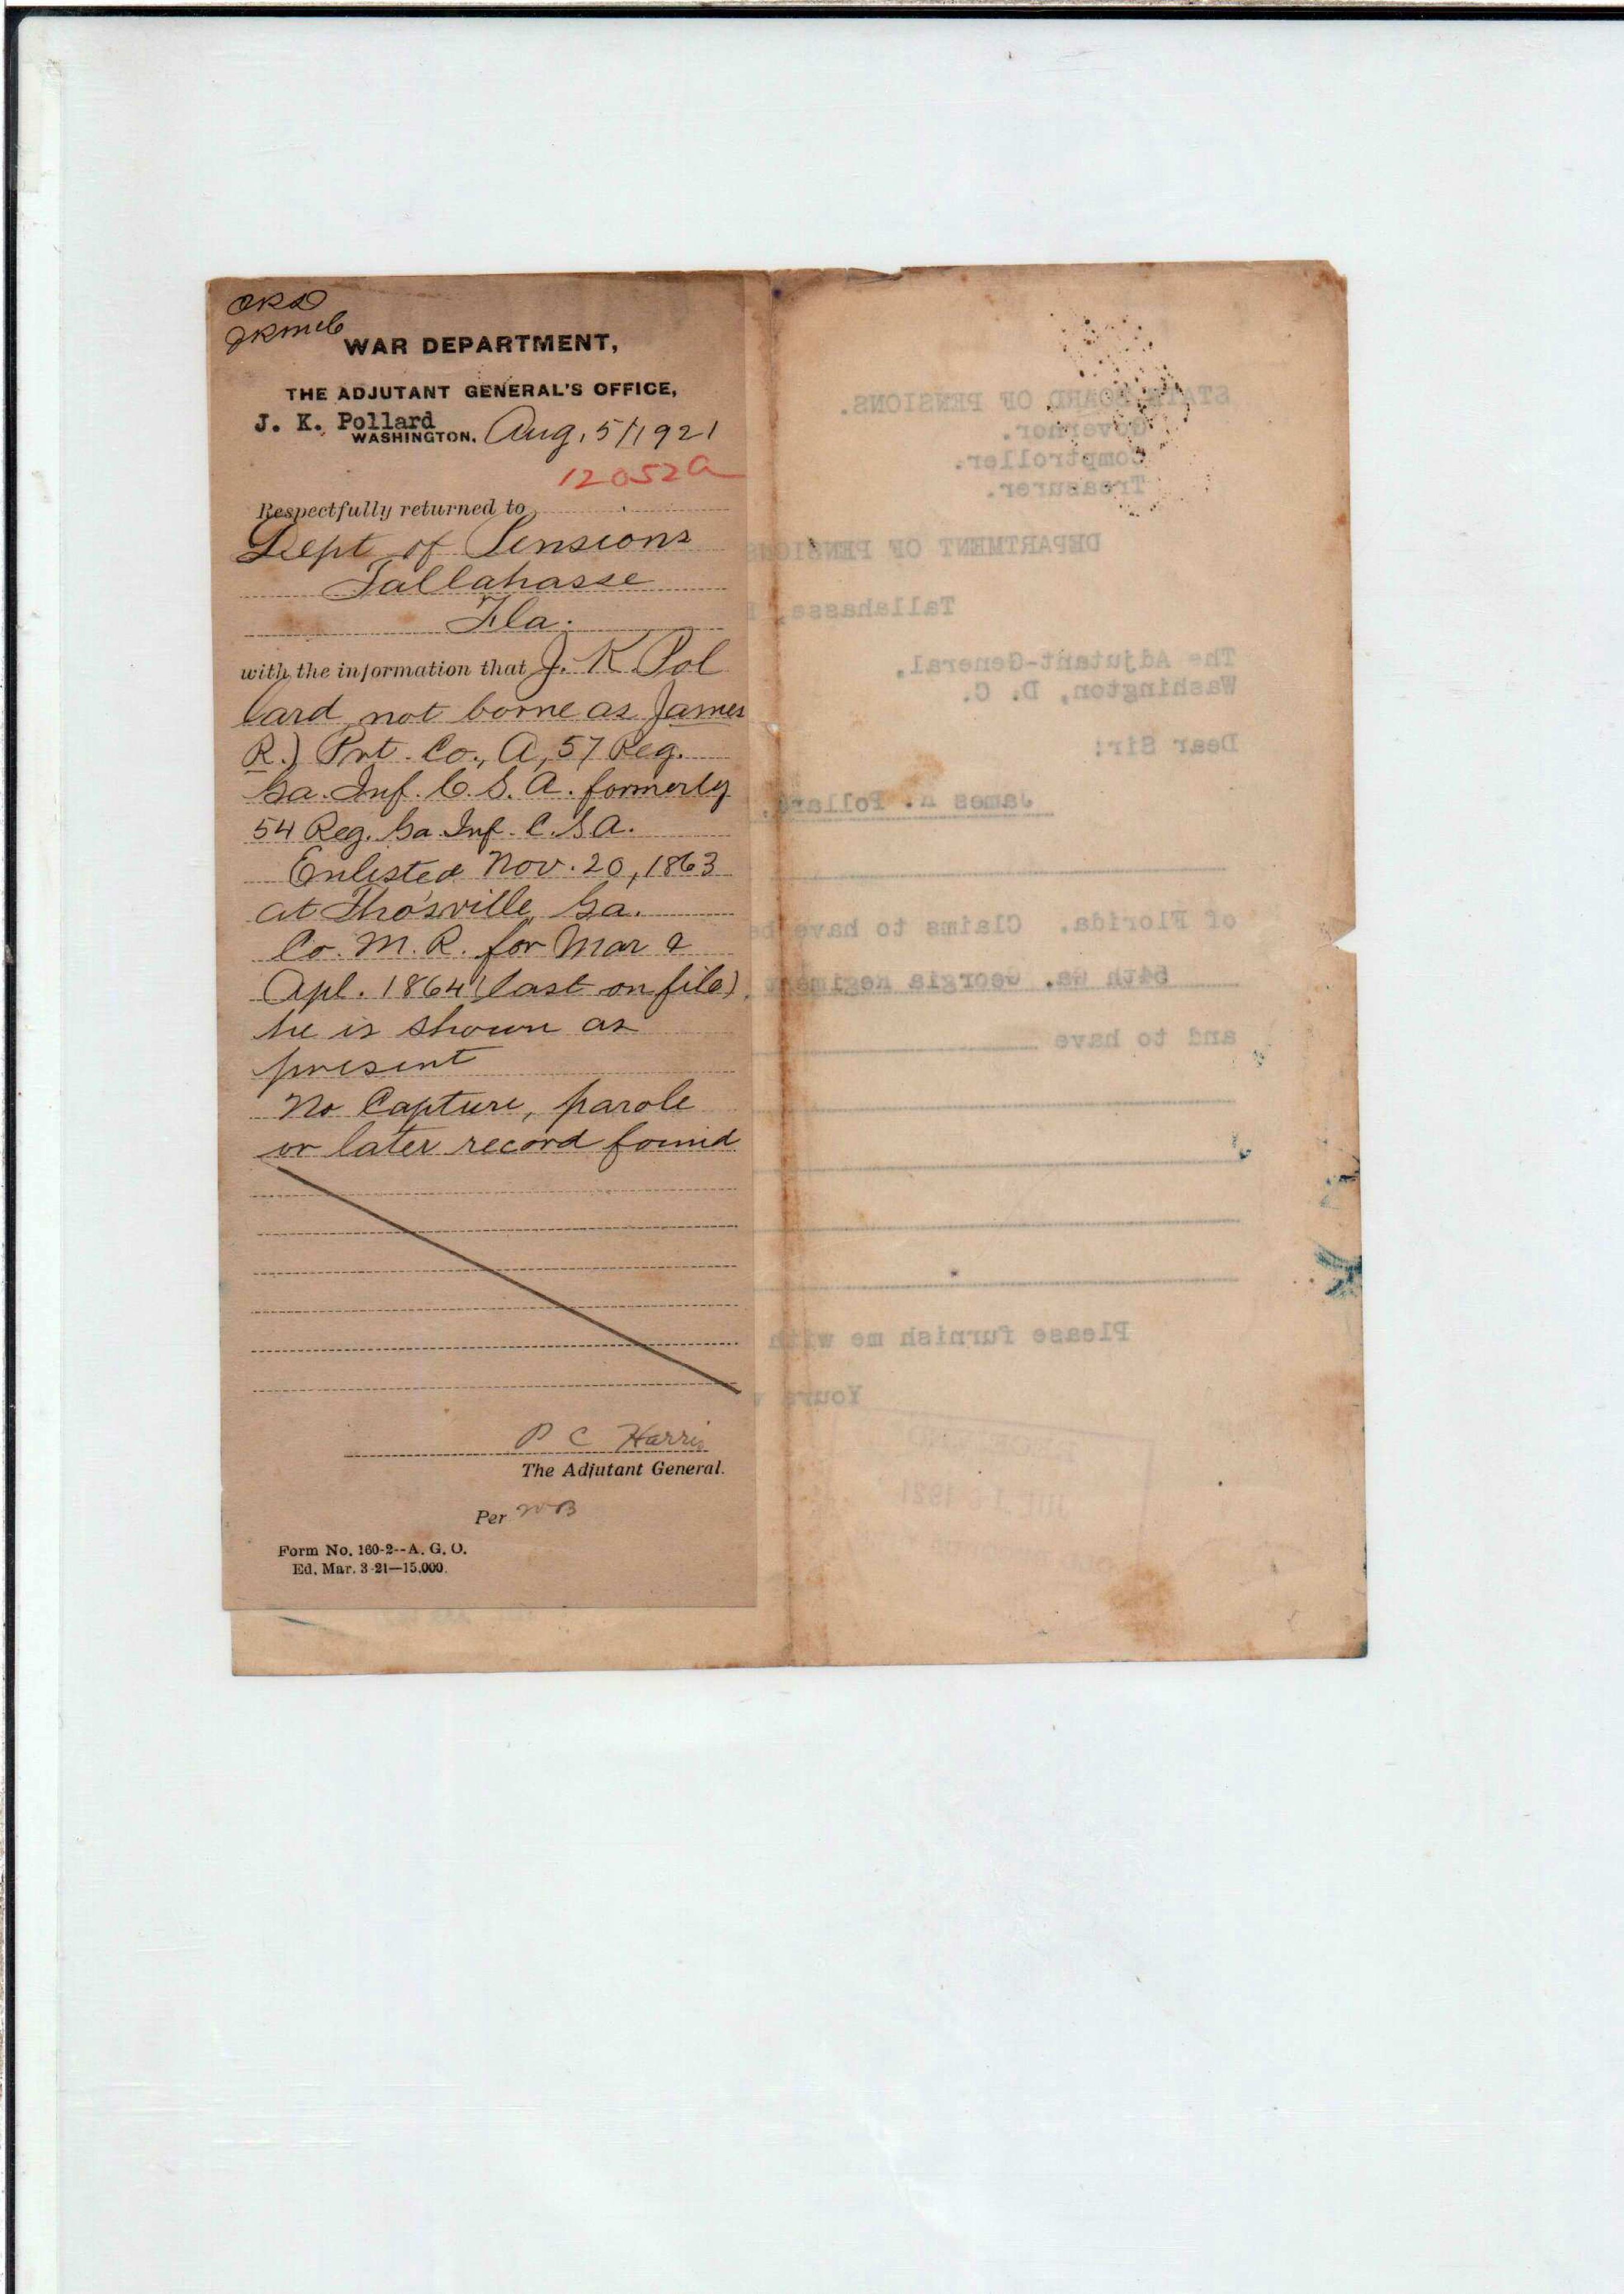 WAR DEPARTMENT,
THE ADJUTANT GENERAL'S OFFICE,
J. K. Pollard
WASHINGTON, Aug, 5/1921
12052a
Respectfully returned to
Dept of Pensions
Tallahasse
Fla.
with the information that J. K. Pol
lard not borne as James
R.) Pvt. Co., A, 57 Reg.
Ga. Inf. C. S. A. formerly
54 Reg. Ga. Inf. C.S.A.
Enlisted Nov. 20, 1863
at Tho'sville, Ga.
Co. M. R. for Mar &
Apl. 1864 (last on file)
he is shown as
present
No Capture, parole
or later record found
P C Harris
The Adjutant General.
Per WB
Form No. 160-2--A. G. O.
Ed. Mar. 3-21—15,000.
STATE BOARD OF PENSIONS.
Governor.
Comptroller.
Treasurer.
DEPARTMENT OF PENSIONS
Tallahasse,
The Adjutant-General,
Washington, D. C.
Dear Sir:
James Pollard,
of Florida. Claims to have be
54th Ga. Georgia Regiment
and to have
Please furnish me with
Yours
1921